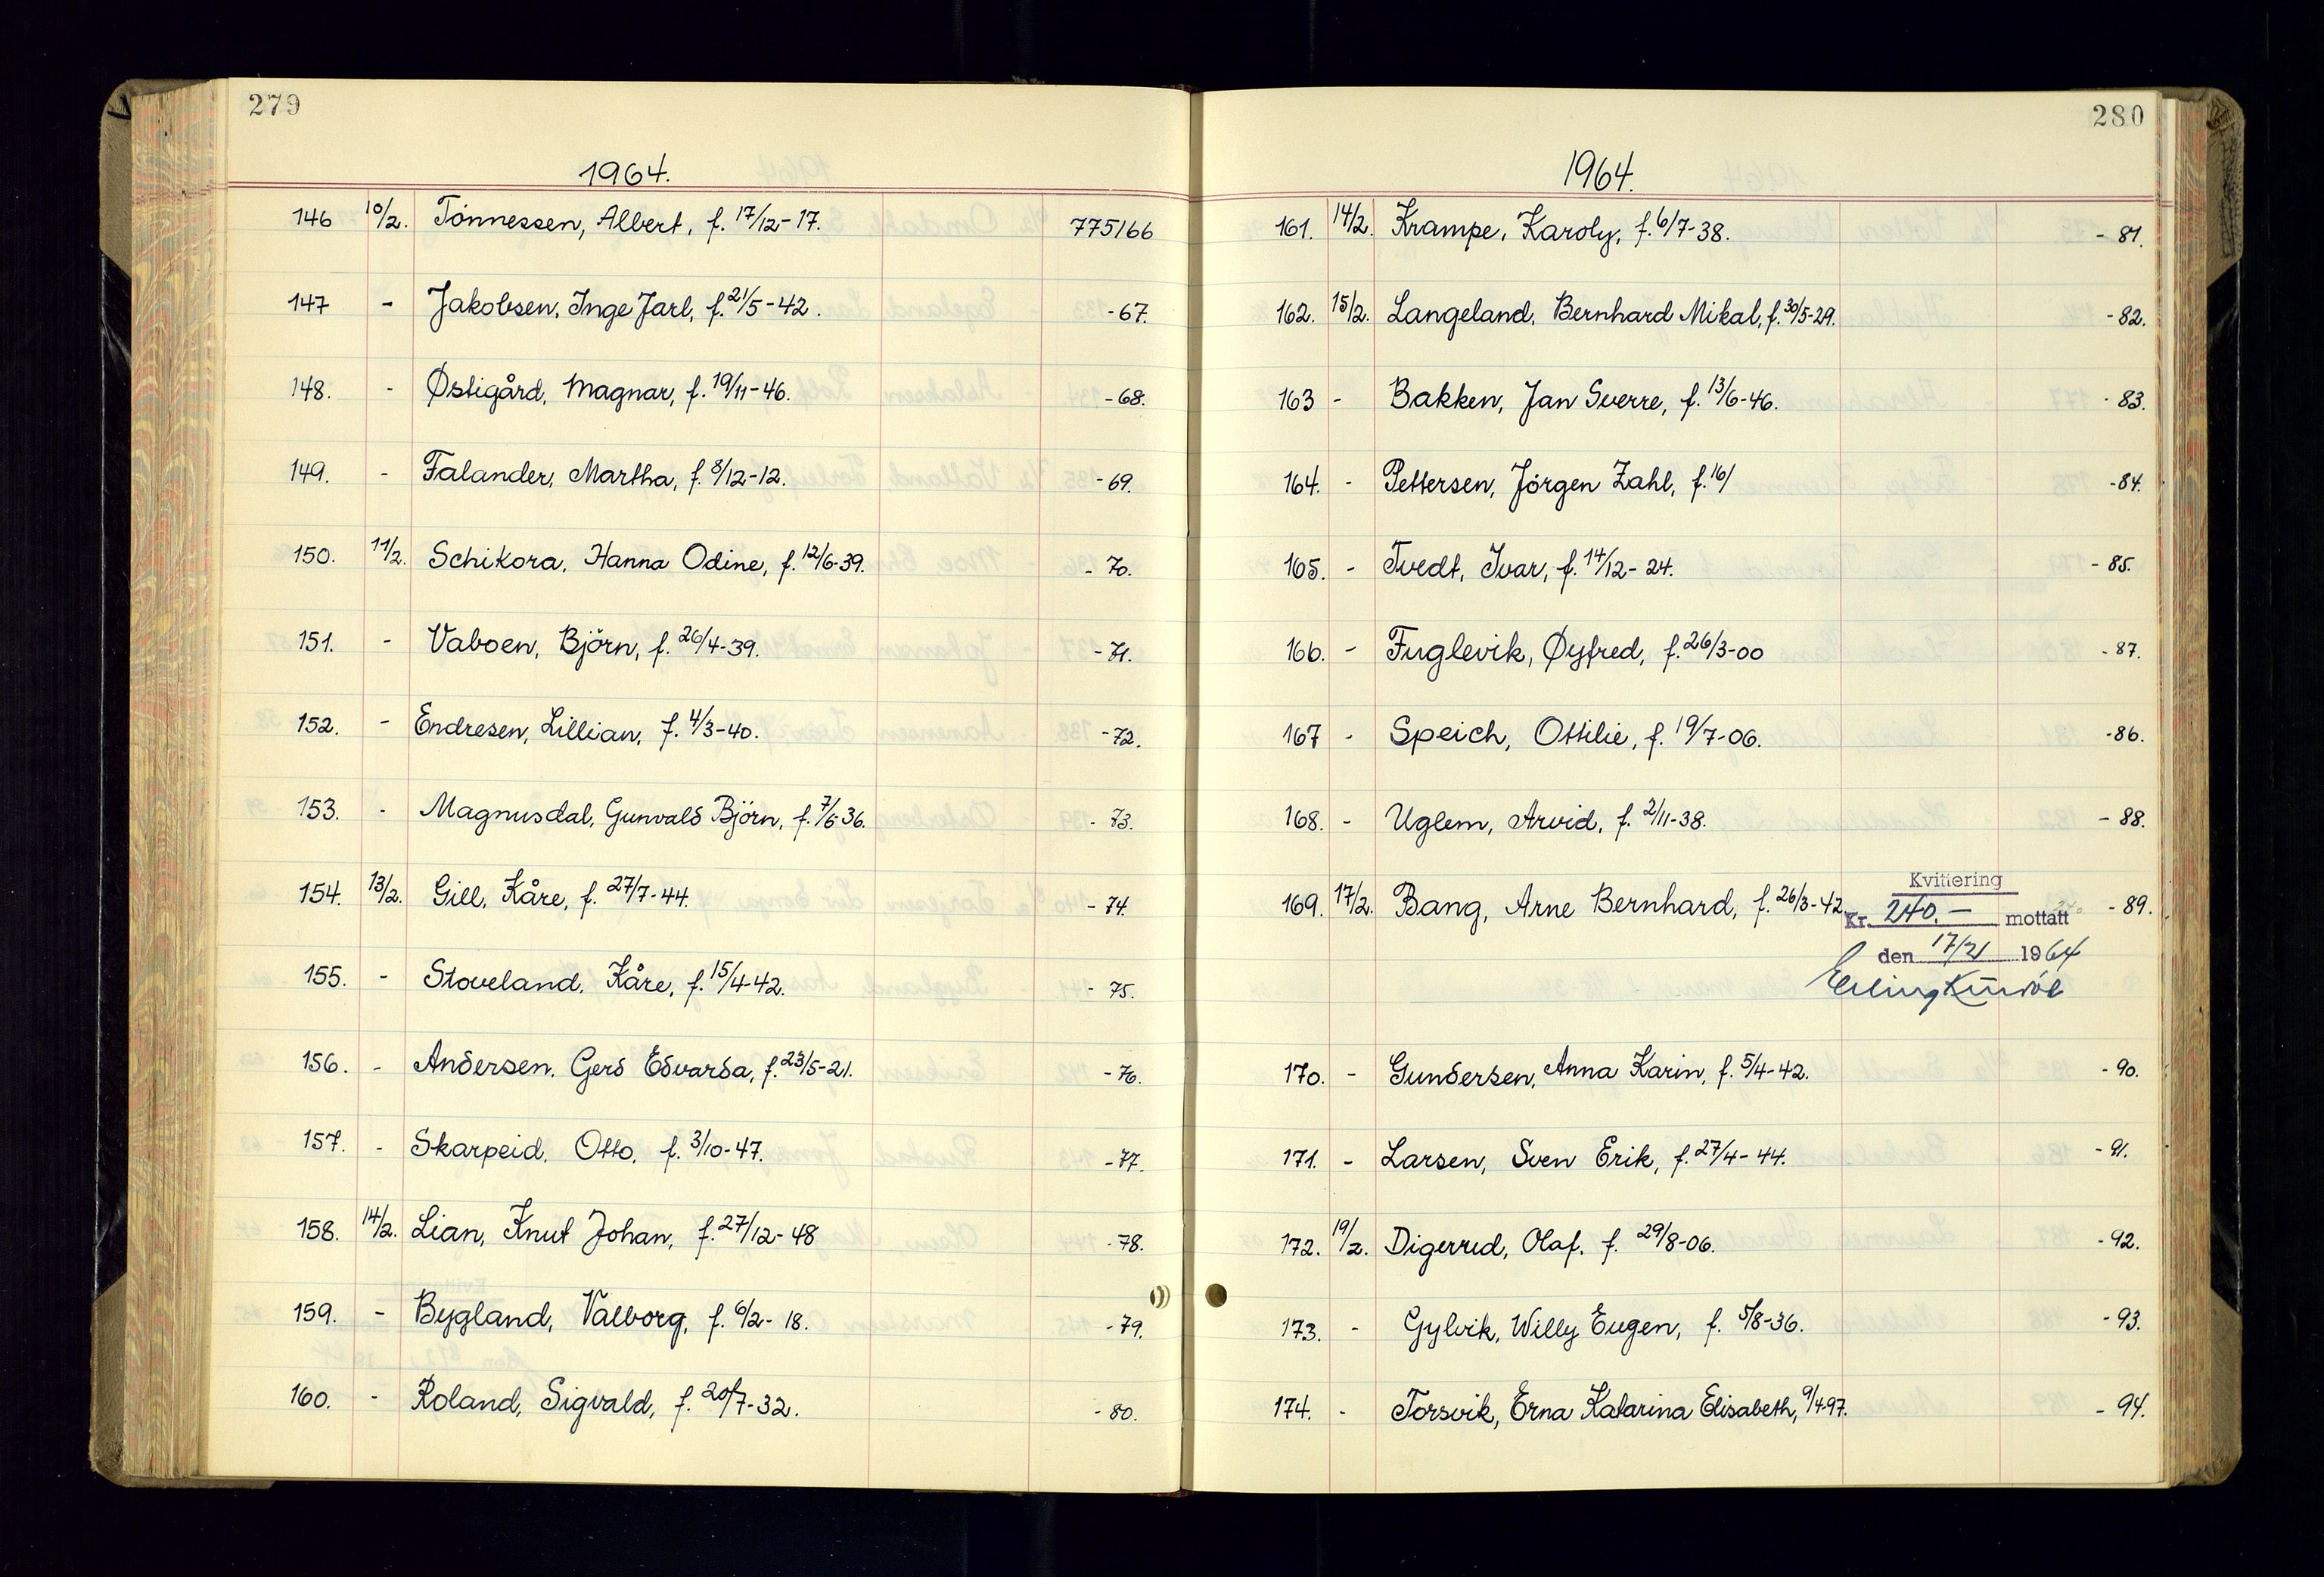 279
1964.
146 10/2. Tönnessen, Albert, f. 17/12-17. 775166
147 - Jakobsen, Inge Jarl, f. 21/5-42. -67.
148. - Østigård, Magnar, f. 19/11-46. -68.
149. - Falander, Martha, f. 8/12-12. -69.
150. 11/2. Schikora, Hanna Odine, f. 12/6-39. -70.
151. - Vaboen, Björn, f. 26/4-39. -71.
152. - Endresen, Lillian, f. 4/3-40. -72.
153. - Magnusdal, Gunvald Björn, f. 7/6-36. -73.
154. 13/2. Gill, Kåre, f. 27/7-44. -74.
155. - Stoveland, Kåre, f. 15/4-42. -75.
156. - Andersen, Gerd Edvarda, f. 23/5-21. -76.
157. - Skarpeid, Otto, f. 3/10-47. -77.
158. 14/2. Lian, Knut Johan, f. 27/12-48 -78.
159. - Bygland, Valborg, f. 6/2-18. -79.
160. - Roland, Sigvald, f. 20/7-32. -80.
280
1964.
161. 14/2. Krampe, Karoly, f. 6/7-38. -81.
162. 15/2. Langeland, Bernhard Mikal, f. 30/5-29. -82.
163 - Bakken, Jan Sverre, f. 13/6-46. -83.
164. - Pettersen, Jörgen Zahl, f. 16/ -84.
165. - Tvedt, Ivar, f. 14/12-24. -85.
166. - Fuglevik, Øyfred, f. 26/3-00 -87.
167 - Speich, Ottilie, f. 19/7-06. -86.
168. - Uglem, Arvid, f. 2/11-38. -88.
169. 17/2. Bang, Arne Bernhard, f. 26/3-42 -89.
Kvittering
Kr. 240.- mottatt
den 17/2 1964
170. - Gundersen, Anna Karin, f. 5/4-42. -90.
171. - Larsen, Sven Erik, f. 27/4-44. -91.
172. 19/2. Digerud, Olaf, f. 29/8-06. -92.
173. - Gylvik, Willy Eugen, f. 5/8-36. -93.
174. - Torsvik, Erna Katarina Elisabeth, 9/4-97. -94.